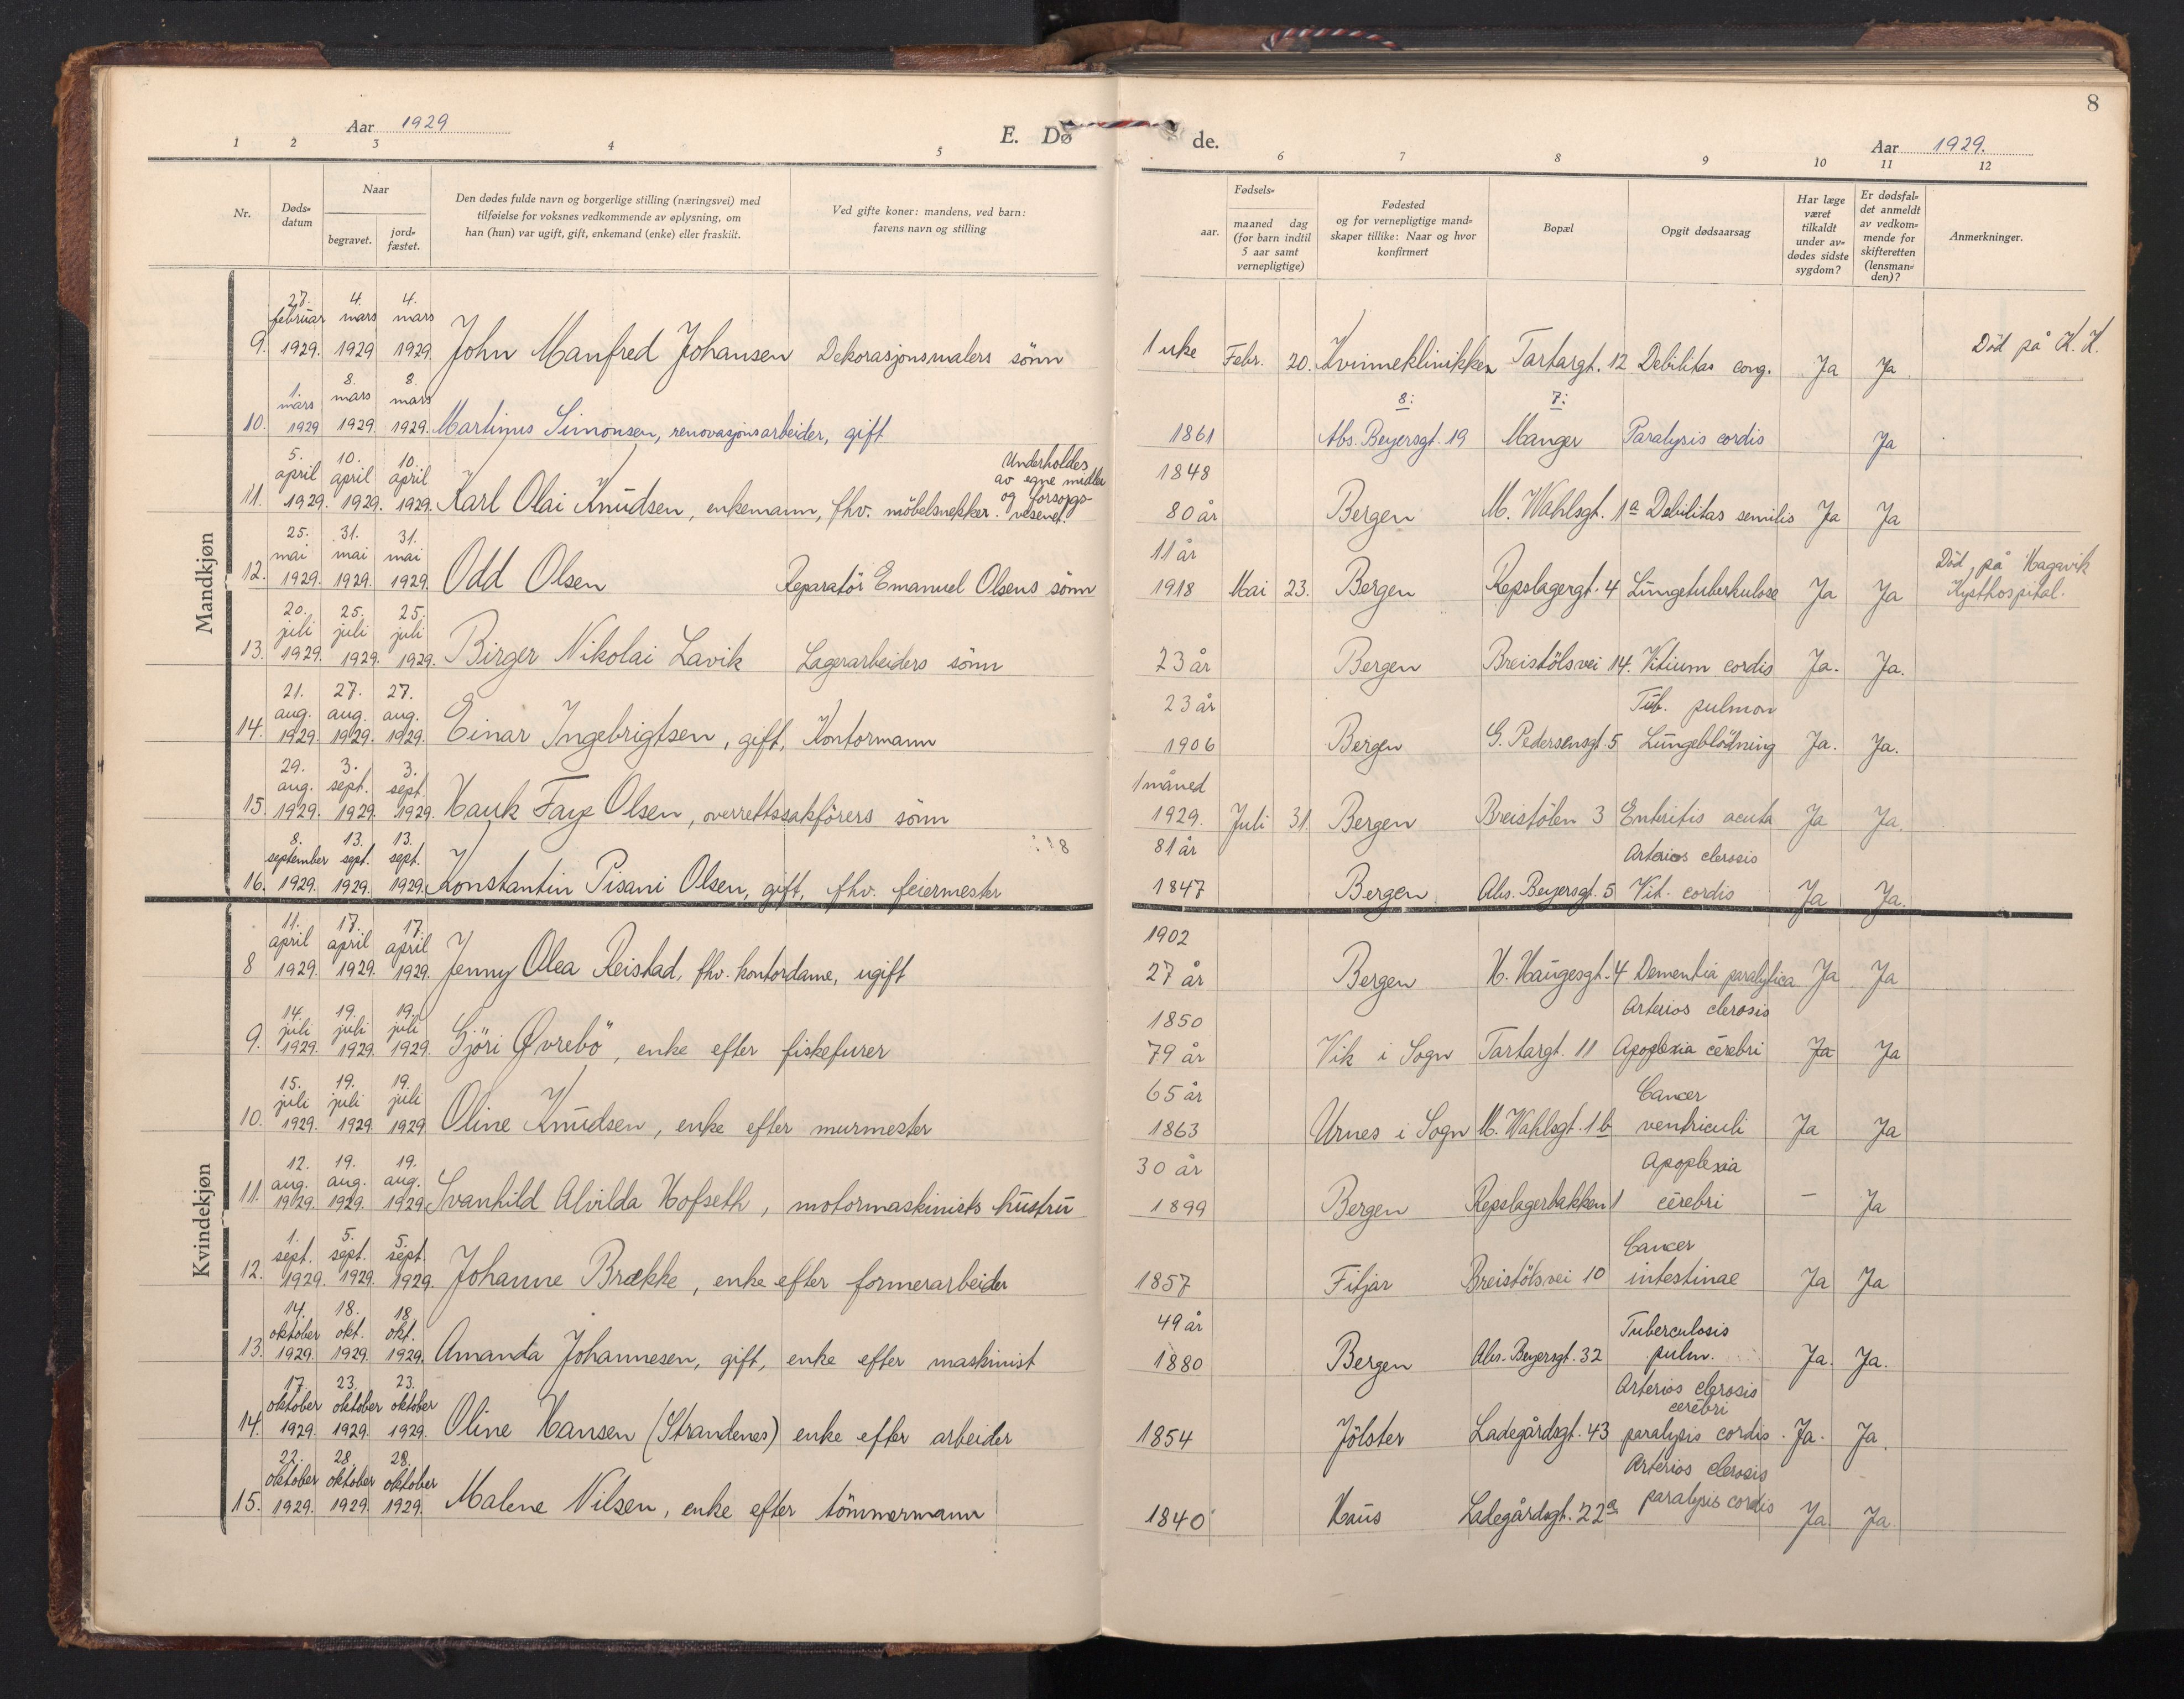 8
Aar 1929
E. Dø de.
Aar 1929.
1 2 3 4 5 6 7 8 9 10 11 12
Nr.
Døds-
datum
Naar
begravet.
jord-
fæstet.
Den dødes fulde navn og borgerlige stilling (næringsvei) med
tilføielse for voksnes vedkommende av oplysning, om
han (hun) var ugift, gift, enkemand (enke) eller fraskilt.
Ved gifte koner: mandens, ved barn:
farens navn og stilling
Fødsels-
aar.
maaned dag
(for barn indtil
5 aar samt
vernepligtige)
Fødested
og for vernepligtige mand-
skaper tillike: Naar og hvor
konfirmert
Bopæl
Opgit dødsaarsag
Har læge
været
tilkaldt
under av-
dødes sidste
sygdom?
Er dødsfal-
det anmeldt
av vedkom-
mende for
skifteretten
(lensman-
den)?
Anmerkninger.
Mandkjøn
27. 4. 4.
februar mars mars
9. 1929. 1929 1929. John Manfred Johansen Dekorasjonsmalers sönn 1 uke Febr. 20. Kvinneklinikken Tartargt. 12 Debilitas cong. Ja Ja. Död på K. K.
1. 8. 8.
mars mars mars 8: 7:
10. 1929 1929. 1929. Martinus Simonsen, renovasjonsarbeider, gift 1861 Abs. Beyersgt. 19 Manger Paralysis cordis Ja
5. 10. 10. Underholdes
april april april av egne midler 1848
11. 1929. 1929. 1929. Karl Olai Knudsen, enkemann, fhv. möbelsnekker. og forsorgs-
vesenet. 80 år Bergen M. Wahlsgt. 1a Debilitas semilis Ja Ja
25. 31. 31.
mai mai mai 11 år Död på Hagavik
12. 1929. 1929. 1929. Odd Olsen Reparatör Emanuel Olsens sönn 1918 Mai 23. Bergen Repslagergt. 4 Lungetuberkulose Ja Ja Kysthospital.
20. 25. 25.
juli juli juli
13. 1929. 1929. 1929. Birger Nikolai Lavik Lagerarbeiders sönn 23 år Bergen Breistölsvei 14. Vitium cordis Ja. Ja.
21. 27. 27.
aug. aug. aug. 23 år Tub. pulmon
14. 1929. 1929. 1929. Einar Ingebrigtsen, gift, Kontormann 1906 Bergen G. Pedersensgt. 5 Lungeblödning Ja. Ja.
29. 3. 3.
aug. sept. sept. 1 måned
15. 1929. 1929. 1929. Hauk Faye Olsen, overrettssakförers sönn 1929. Juli 31. Bergen Breistölen 3 Entritis acuta Ja Ja.
8. 13. 13.
september sept. sept. 81 år Arterios clerosis
16. 1929. 1929. 1929. Konstantin Pisani Olsen, gift, fhv. feiermester 1847 Bergen Abs. Beyersgt. 5 Vit. cordis Ja Ja.
Kvindekjøn
11. 17. 17.
april april april 1902
8 1929. 1929. 1929. Jenny Olea Reistad, fhv. kontordame, ugift 27 år Bergen H. Haugesgt. 4 Dementia paralytica Ja Ja
14. 19. 19.
juli juli juli 1850 Arterios clerosis
9. 1929. 1929. 1929. Gjöri Øvrebö, enke efter fiskefurer 79 år Vik i Sogn Tartargt. 11 Apoplexia cerebri Ja Ja
15. 19. 19.
juli juli juli 65 år Cancer
10. 1929. 1929 1929 Oline Knudsen, enke efter murmester 1863 Urnes i Sogn M. Wahlsgt. 1b ventriculi Ja Ja
12. 19. 19.
aug. aug. aug. 30 år Apoplexia
11. 1929. 1929. 1929. Svanhild Alvilda Hofseth, motormaskinists hustru 1899 Bergen Repslagerbakken 1 cerebri – Ja
1. 5. 5.
sept. sept. sept. Cancer
12. 1929. 1929. 1929. Johanne Brække, enke efter formerarbeider 1857 Fitjar Breistölsvei 10 intestinae Ja Ja
14. 18. 18.
oktober okt. okt. 49 år Tuberculosis
13. 1929. 1929. 1929. Amanda Johannesen, gift, enke efter maskinist 1880 Bergen Abs. Beyersgt. 32 pulm. Ja. Ja.
17. 23. 23. Arterios clerosis
oktober oktober oktober cerebri
14. 1929. 1929. 1929. Oline Hansen (Strandenes) enke efter arbeider 1854 Jölster Ladegårdsgt. 43 paralysis cordis. Ja. Ja.
22. 28. 28.
oktober oktober oktober Arterios clerosis
15. 1929. 1929. 1929. Malene Nilsen, enke efter tömmermann 1840 Haus Ladegårdsgt. 22a paralysis cordis Ja. Ja.